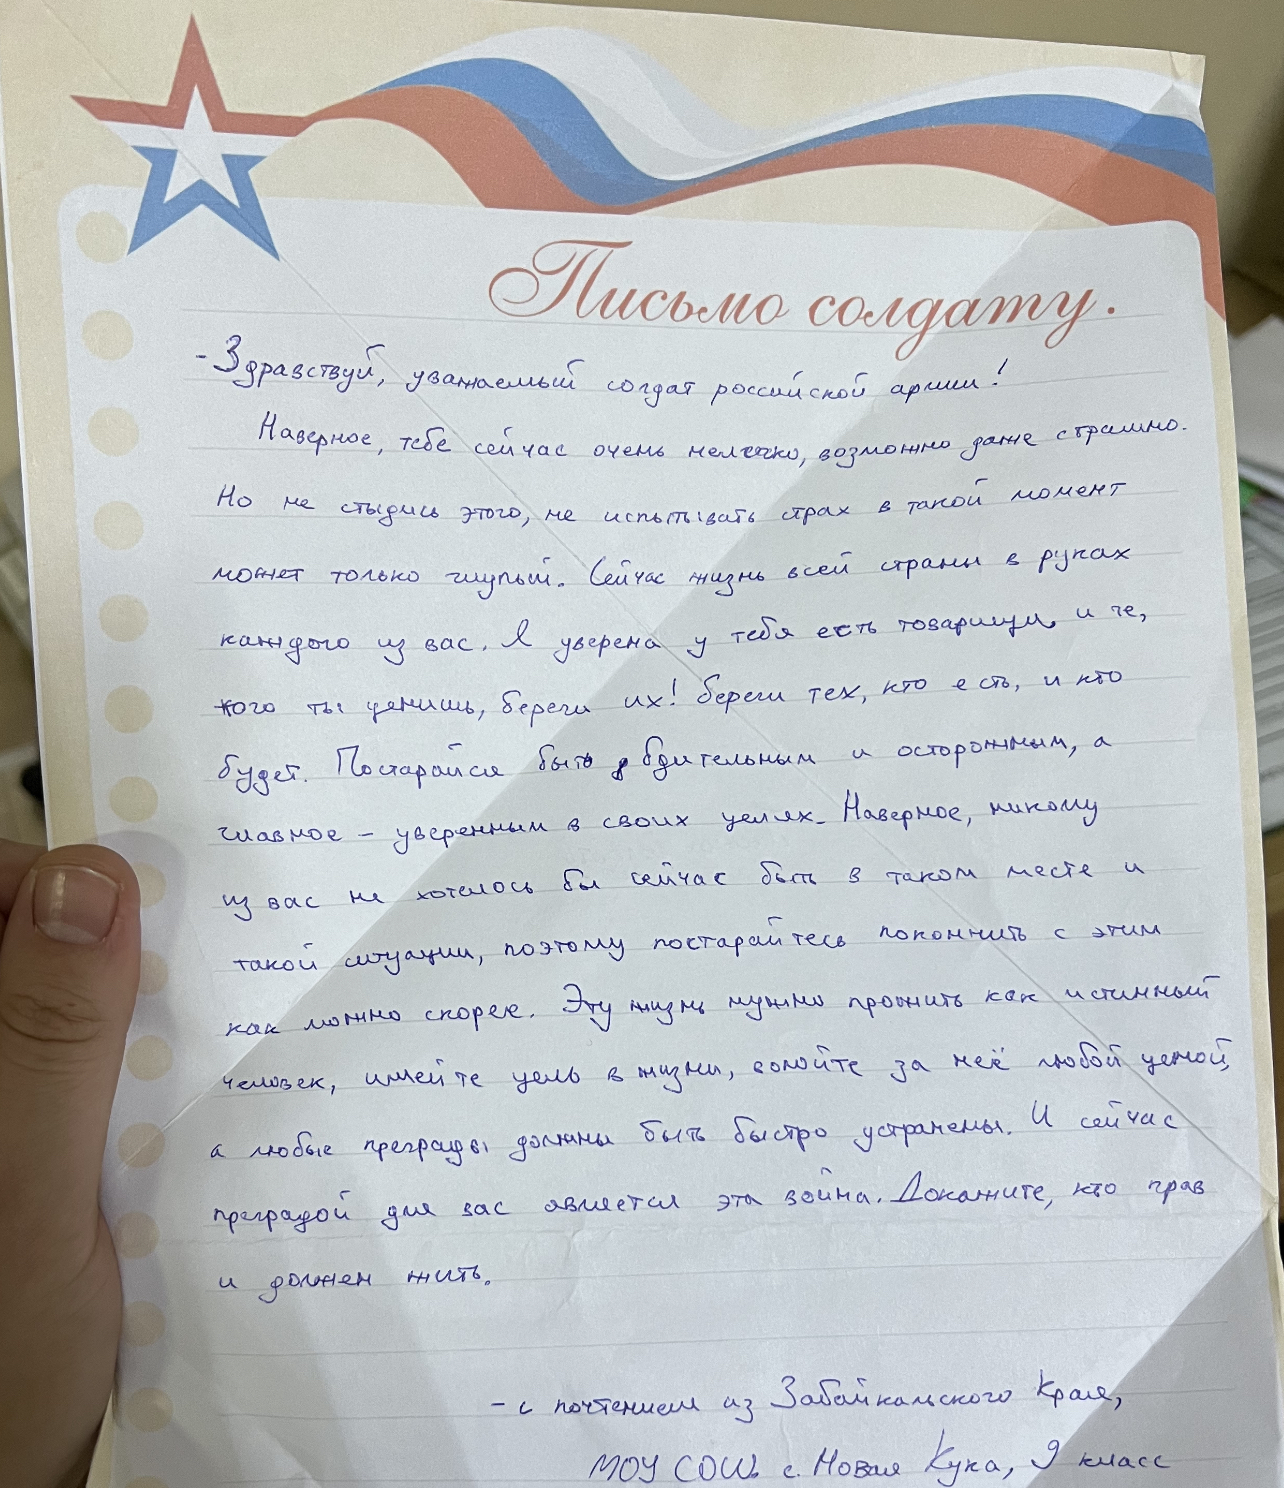 Письмо солдату.
- Здравствуй, уважаемый солдат российской армии!
Наверное, тебе сейчас очень нелегко, возможно даже страшно.
Но не стыдись этого, не испытывать страх в такой момент
может только глупый. Сейчас жизнь всей страны в руках
каждого из вас. Я уверена у тебя есть товарищи и те,
кого ты ценишь, береги их! береги тех, кто есть, и кто
будет. Постарайся быть бдительным и осторожным, а
главное – уверенным в своих целях. Наверное, никому
из вас не хотелось бы сейчас быть в таком месте и
такой ситуации, поэтому постарайтесь покончить с этим
как можно скорее. Эту жизнь нужно прожить как истинный
человек, имейте цель в жизни, воюйте за неё любой ценой,
а любые преграды должны быть быстро устранены. И сейчас
преградой для вас является эта война. Докажите, кто прав
и должен жить.
- с почтением из Забайкальского Края,
МОУ СОШ с. Новая Кука, 9 класс